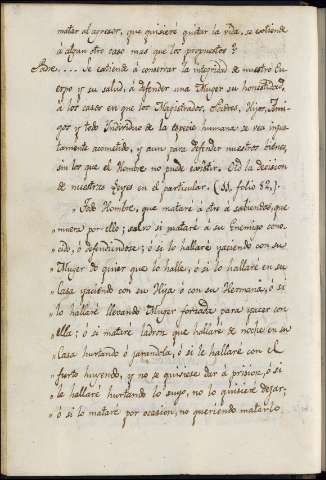 matar al agresor, que quisiere quitar la vida, se estiende
á algun otro caso mas que los propuestos?
Padre.... Se estiende á conservar la integridad de nuestro Cu-
erpo y su salud, á defender una Muger su honestidad,
á los casos en que los Magistrados, Padres, Hijos, Ami-
gos y todo Individuo de la especie humana se vea injus-
tamente acometido, y aun para defender nuestros bienes,
sin los que el Hombre no puede existir. Oid la decision
de nuestras Leyes en el particular. (11. folio 82.)
Todo Hombre, que matare á otro á sabiendas, que
" muera por ello; salvo si matare á su Enemigo cono-
" cido, ó defendiendose; ó si lo hallare yaciendo con su
" Muger do quier que lo halle, ó si lo hallare en su
" Casa yaciendo con su Hija ó con su Hermana, ó si
" lo hallare llevando Muger forzada para yacer con
" ella; ó si matare ladron que hallare de noche en su
" Casa hurtando ó
ó si le hallare con el
" furto huyendo, y no se quisiese dar á prision, ó si
" le hallare hurtando lo suyo, no lo quisiere dexar;
" ó si lo matare por ocasion, no queriendo matarlo